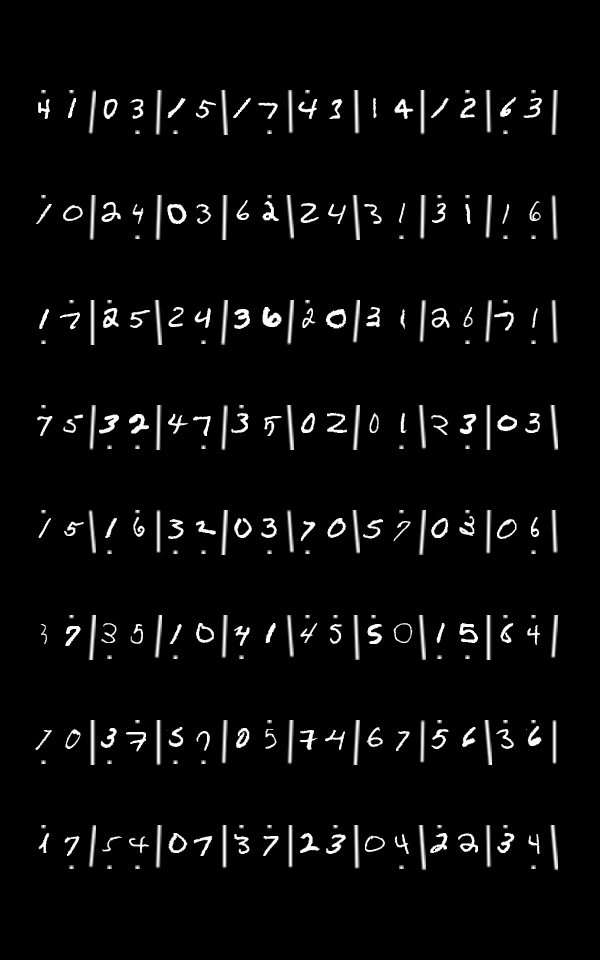 4̇ 1̇ | 0 3̣ | 1̣ 5 | 1 7̣ | 4̇ 3 | 1 4 | 1 2̇ | 6̣ 3̇ |
1̇ 0 | 2 4̣ | 0 3 | 6 2̇ | 2 4 | 3 1̣ | 3̇ 1̇ | 1̣ 6̣ |
1̣ 7̇ | 2̇ 5 | 2 4̣ | 3 6 | 2̇ 0 | 3 1 | 2 6̣ | 7̇ 1̣ |
7̇ 5 | 3̣ 2̣ | 4 7̣ | 3̇ 5 | 0 2 | 0 1̣ | 2 3̣ | 0 3 |
1̇ 5 | 1̣ 6̇ | 3̣ 2̣ | 0 3̣ | 7̣ 0 | 5 7̇ | 0 3̇ | 0 6̣ |
3 7̇ | 3̣ 5 | 1̣ 0 | 4̣ 1 | 4̇ 5̇ | 5̇ 0 | 1̣ 5̣ | 6̇ 4̇ |
7̣ 0 | 3 7̇ | 5̣ 7̣ | 0 5̇ | 7 4 | 6 7 | 5̇ 6 | 3 6̇ |
1̇ 7̣ | 5̣ 4 | 0 7 | 3̇ 7̇ | 2 3̇ | 0 4̣ | 2̇ 2 | 3̇ 4̣ |